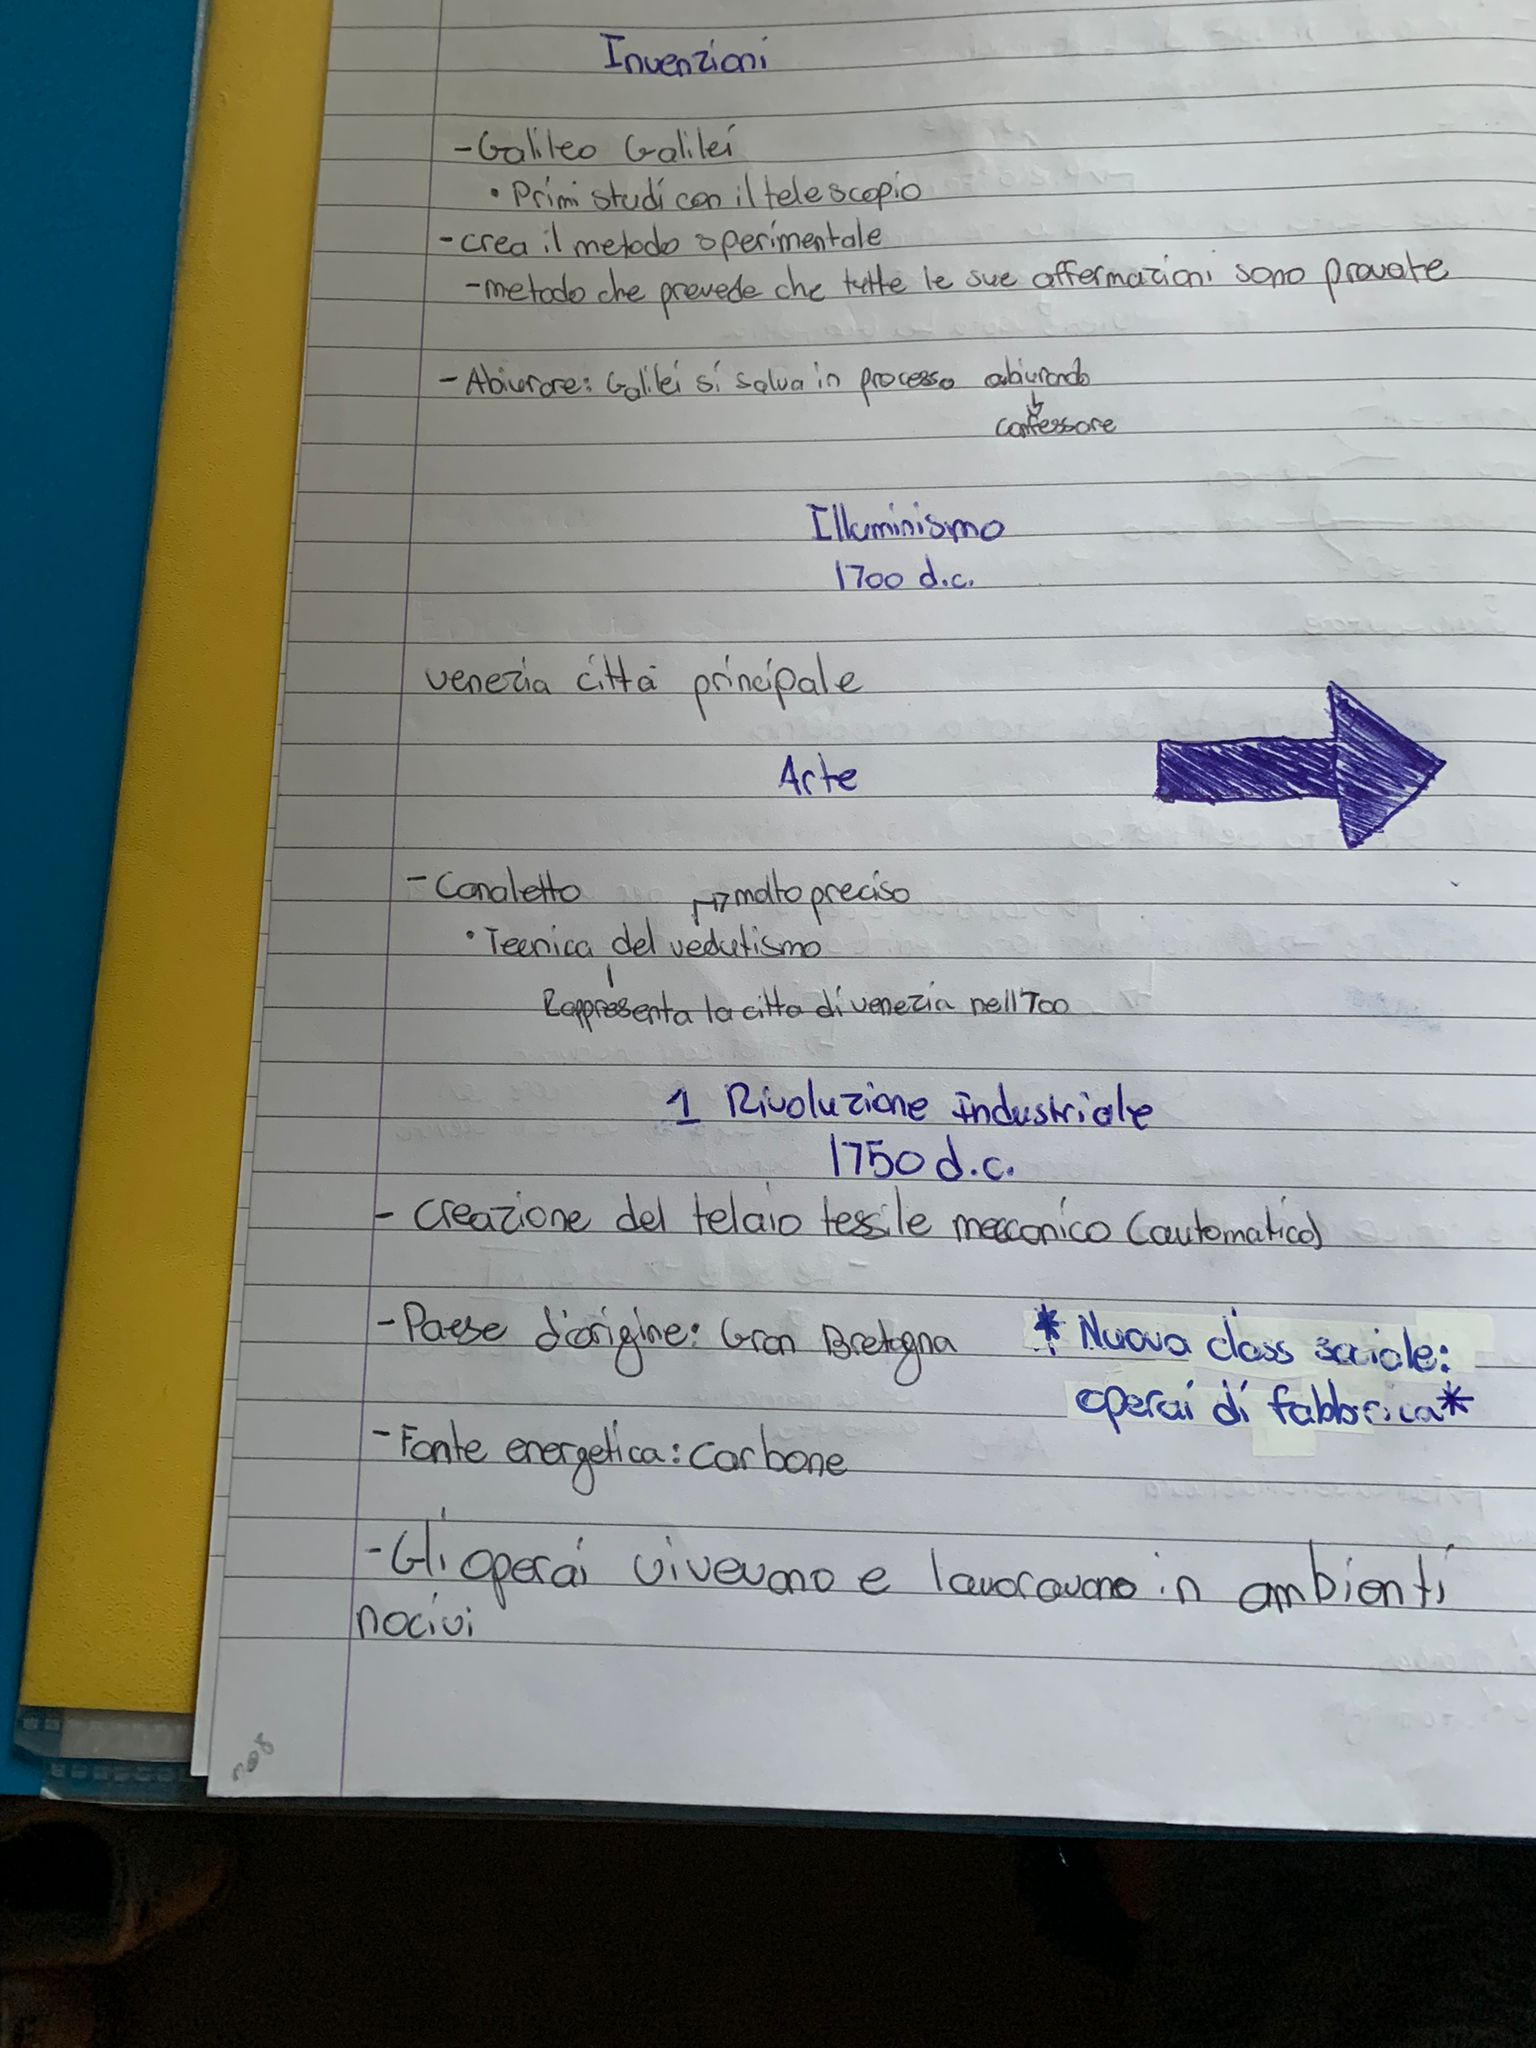 Invenzioni
- Galileo Galilei
• Primi studi con il telescopio
- crea il metodo sperimentale
- metodo che prevede che tutte le sue affermazioni sono provate
- Abiurare: Galilei si salva in processo abiurando
confessare
Illuminismo
1700 d.c.
venezia città principale
Arte
- Canaletto
molto preciso
• Tecnica del vedutismo
Rappresenta la citta di venezia nell'700
1 Rivoluzione industriale
1750 d.c.
- Creazione del telaio tessile meccanico (automatico)
- Paese d'origine: Gran Bretagna
* Nuova class sociale:
operai di fabbrica *
- Fonte energetica: carbone
- Gli operai vivevano e lavoravano in ambienti
nocivi